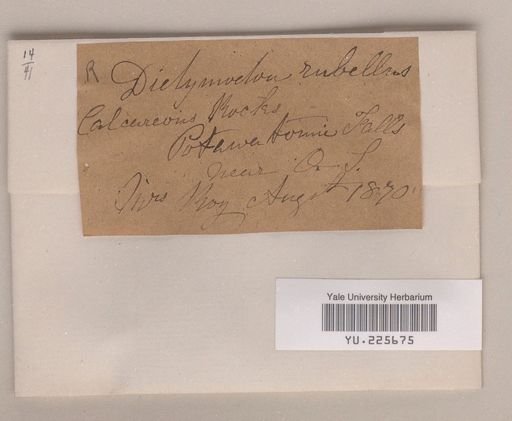 14
41
R Didymodon rubellus
Calcareous Rocks
Potawattomie Falls
near O. L.
Mrs Roy Augst 1870.
Yale University Herbarium
YU.225675